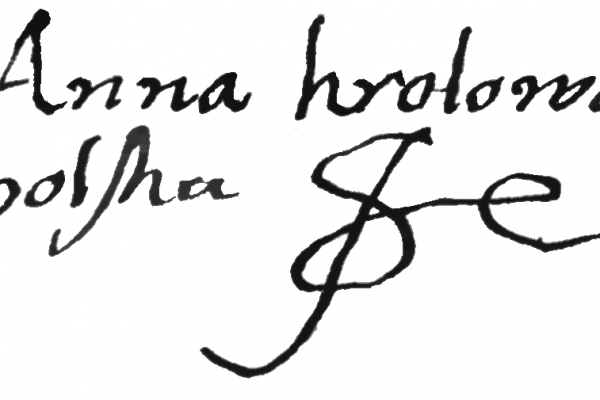 Anna krolowa
polska